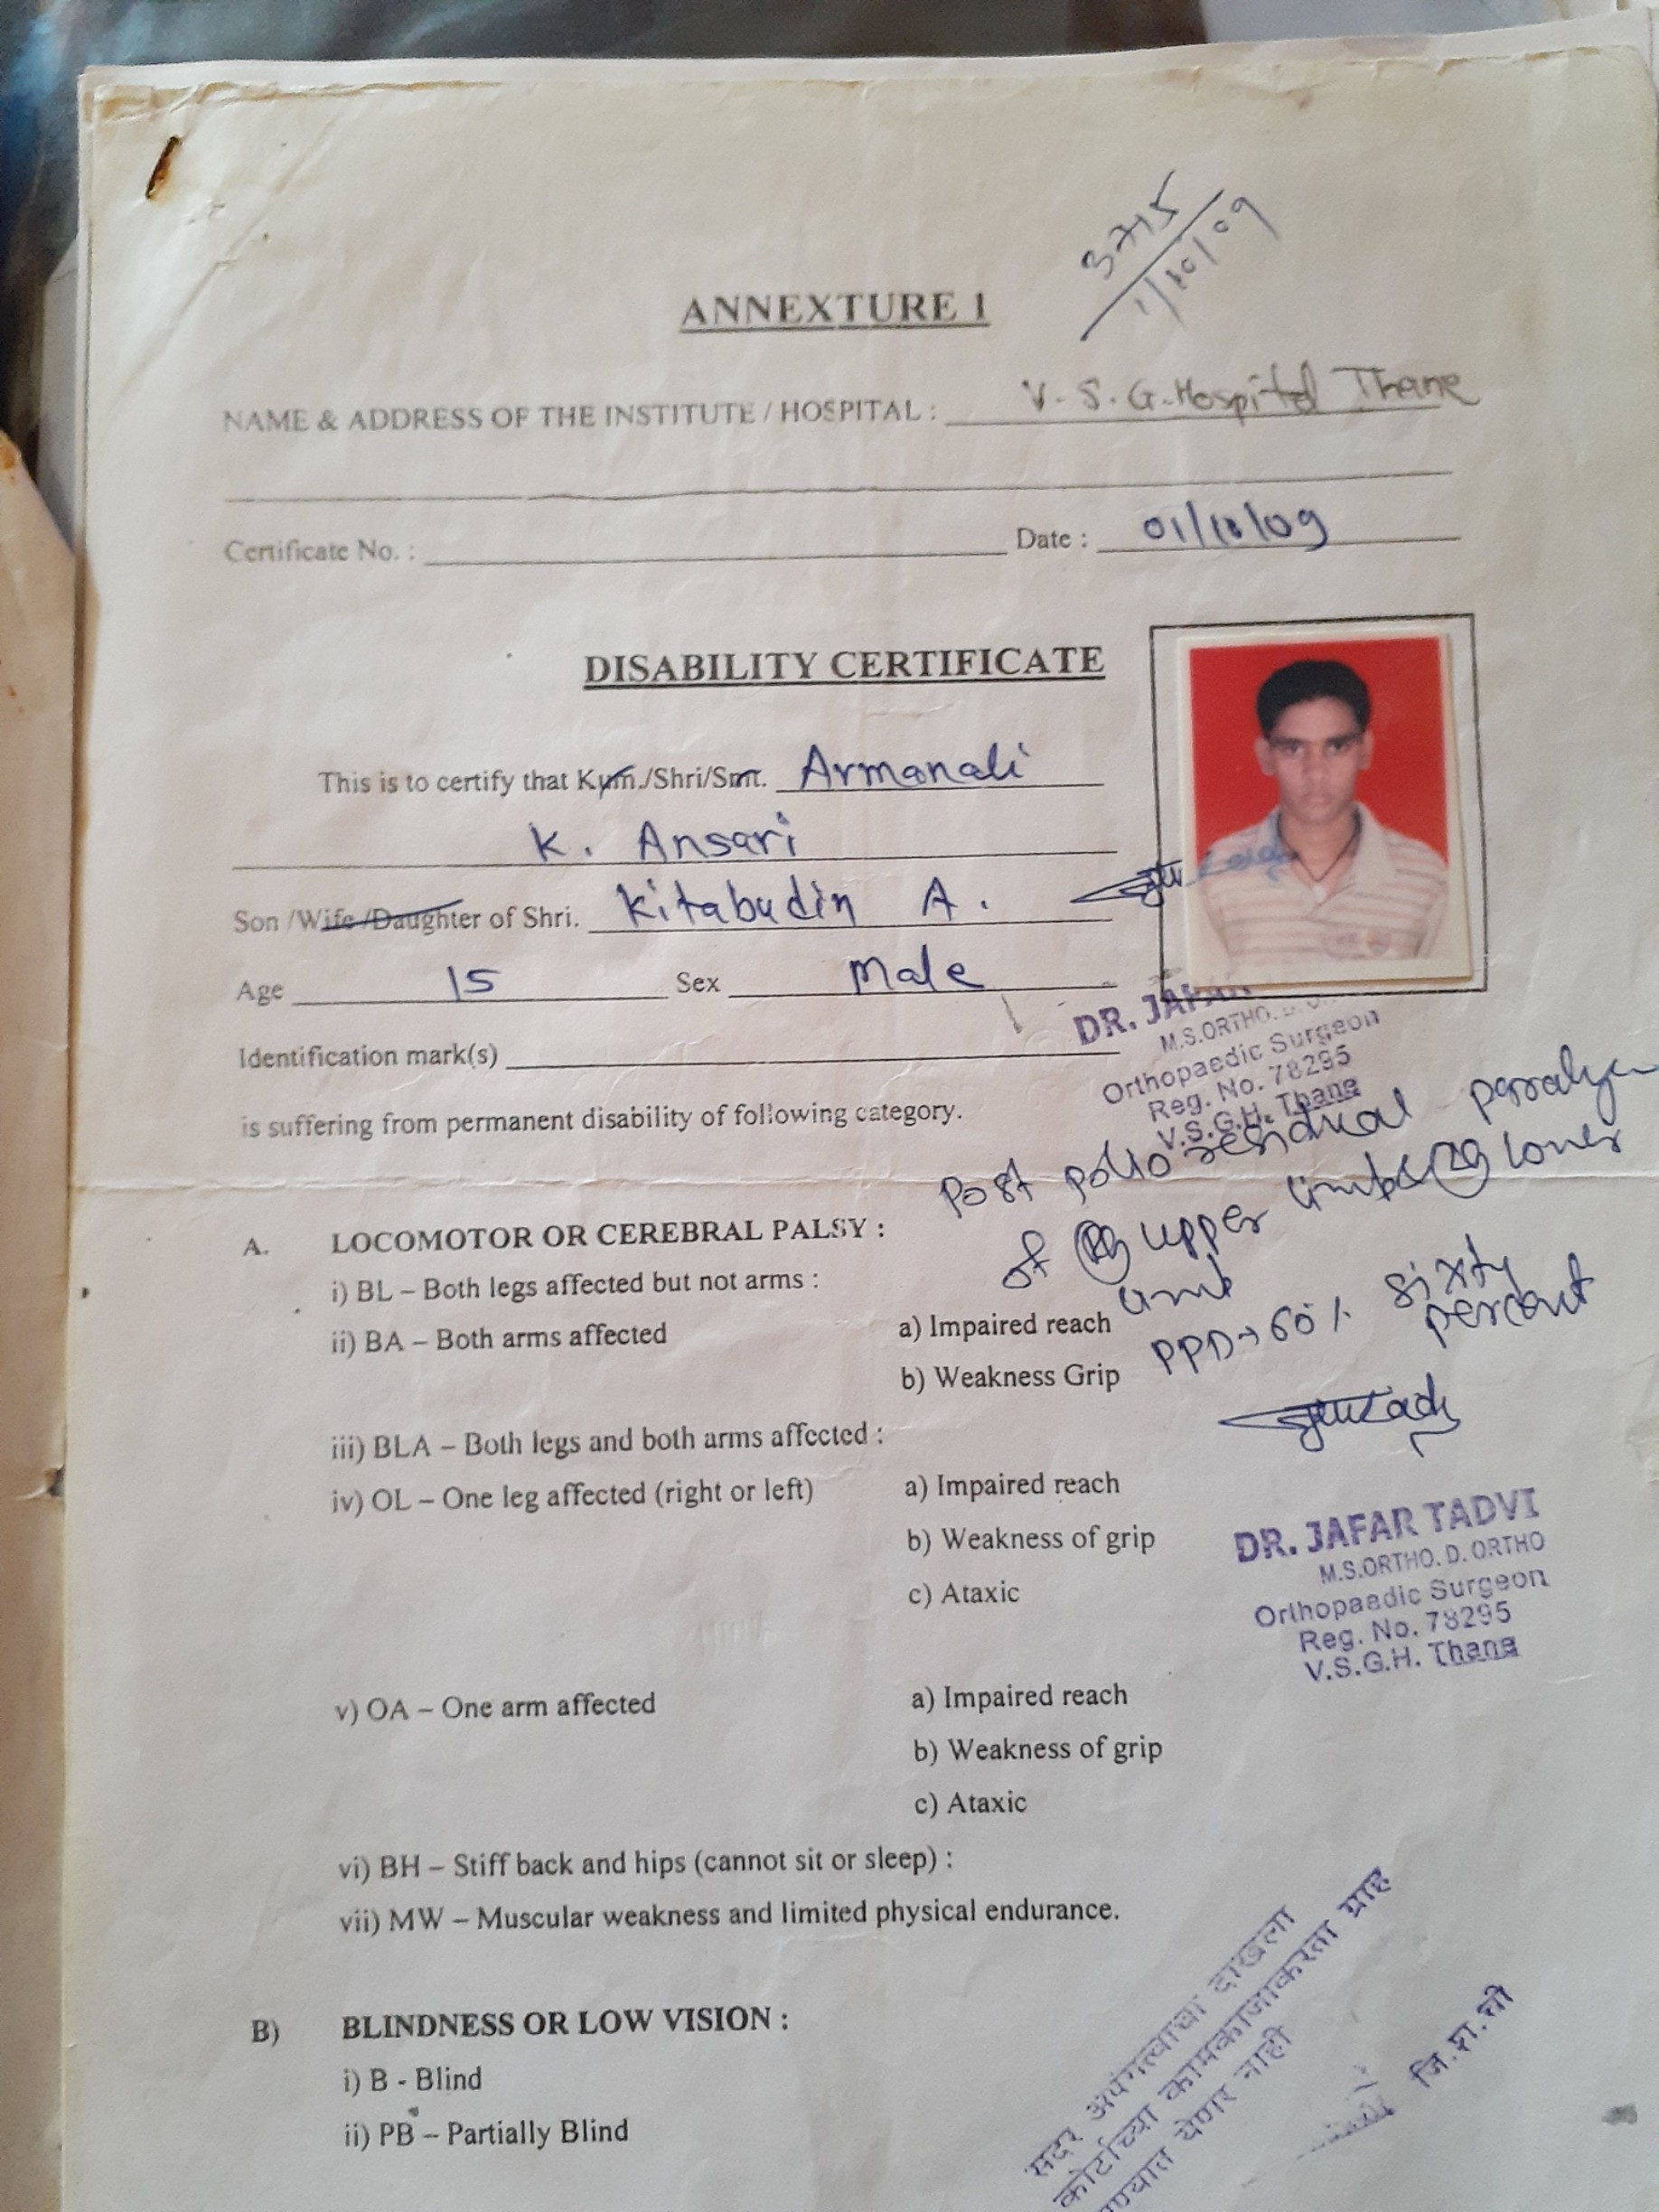 3715
1/10/09
ANNEXTURE 1
NAME & ADDRESS OF THE INSTITUTE / HOSPITAL : V. S. G. Hospital Thane
Certificate No. : Date : 01/10/09
DISABILITY CERTIFICATE
This is to certify that Kum./Shri/Smt. Armanali
K. Ansari
Son /Wife /Daughter of Shri. Kitabudin A.
Age 15 Sex Male
DR. JAFAR
M.S.ORTHO.
Orthopaedic Surgeon
Reg. No. 78295
V.S.G.H. Thane
Identification mark(s)
is suffering from permanent disability of following category.
Post polio residual
of upper limb & lower
limb
PPD→60% sixty
percent
A. LOCOMOTOR OR CEREBRAL PALSY :
i) BL – Both legs affected but not arms :
ii) BA – Both arms affected a) Impaired reach
b) Weakness Grip
iii) BLA – Both legs and both arms affected :
iv) OL – One leg affected (right or left) a) Impaired reach
b) Weakness of grip
c) Ataxic
DR. JAFAR TADVI
M.S.ORTHO. D. ORTHO
Orthopaedic Surgeon
Reg. No. 78295
V.S.G.H. Thane
v) OA – One arm affected a) Impaired reach
b) Weakness of grip
c) Ataxic
vi) BH – Stiff back and hips (cannot sit or sleep) :
vii) MW – Muscular weakness and limited physical endurance.
B) BLINDNESS OR LOW VISION :
i) B - Blind
ii) PB – Partially Blind
सदर अपंगत्वाचा दाखला
कोर्टाच्या कामकाजाकरता ग्राह्य
येणार नाही
जि.श.ची